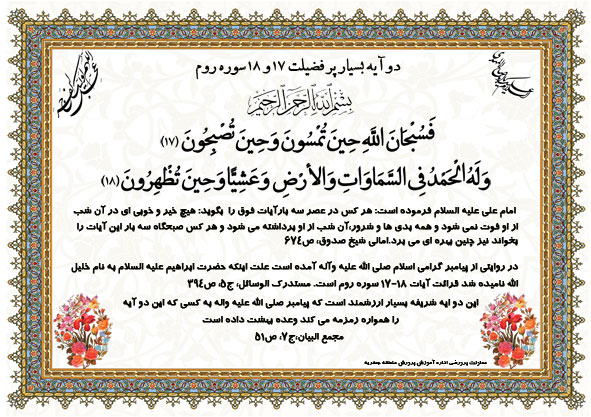 دو آیه بسیار پر فضیلت ۱۷ و ۱۸ سوره روم
بسم الله الرحمن الرحیم
فَسُبْحَانَ اللَّهِ حِينَ تُمْسُونَ وَحِينَ تُصْبِحُونَ (۱۷)
وَلَهُ الْحَمْدُ فِي السَّمَاوَاتِ وَالْأَرْضِ وَعَشِيًّا وَحِينَ تُظْهِرُونَ (۱۸)
امام علی علیه السلام فرموده است: هر کس در عصر سه بار آیات فوق را بگوید: هیچ خیر و خوبی ای در آن شب
از او فوت نمی شود و همه بدی ها و ضرور،آن شب از او برداشته می شود و هر کس صبحگاه سه بار این آیات را
بخواند نیز چنین بهره ای می برد.امالی شیخ صدوق، ص۶۷۴
در روایتی از پیامبر گرامی اسلام صلی الله علیه وآله آمده است علت اینکه حضرت ابراهیم علیه السلام به نام خلیل
الله نامیده شد قرائت آیات ۱۸-۱۷ سوره روم است. مستدرک الوسائل، ج۵، ص۳۹۴
این دو ایه شریفه بسیار ارزشمند است که پیامبر صلی الله علیه واله به کسی که این دو آیه
را همواره زمزمه می کند وعده بهشت داده است
مجمع البیان،ج۷، ص۵۱
معاونت پرورشی اداره آموزش پرورش منطقه جعفریه